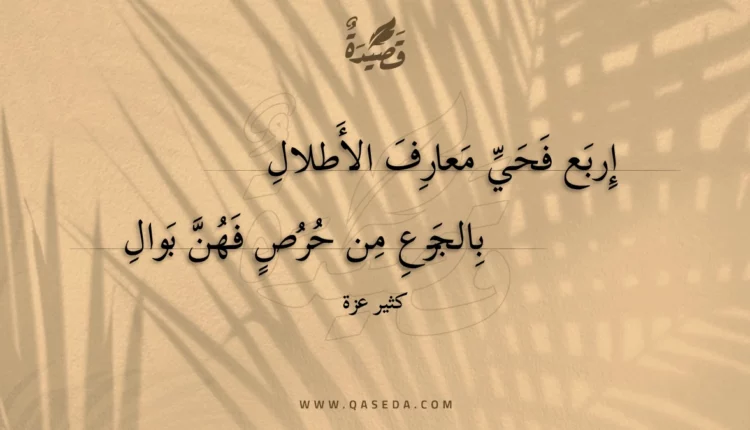 قَصِيْدَةٌ
إِربَع فَحَيِّ مَعارِفَ الأَطلالِ
بِالجَوعِ مِن حُرُصٍ فَهُنَّ بَوالِ
كثير عزة
WWW.QASEDA.COM